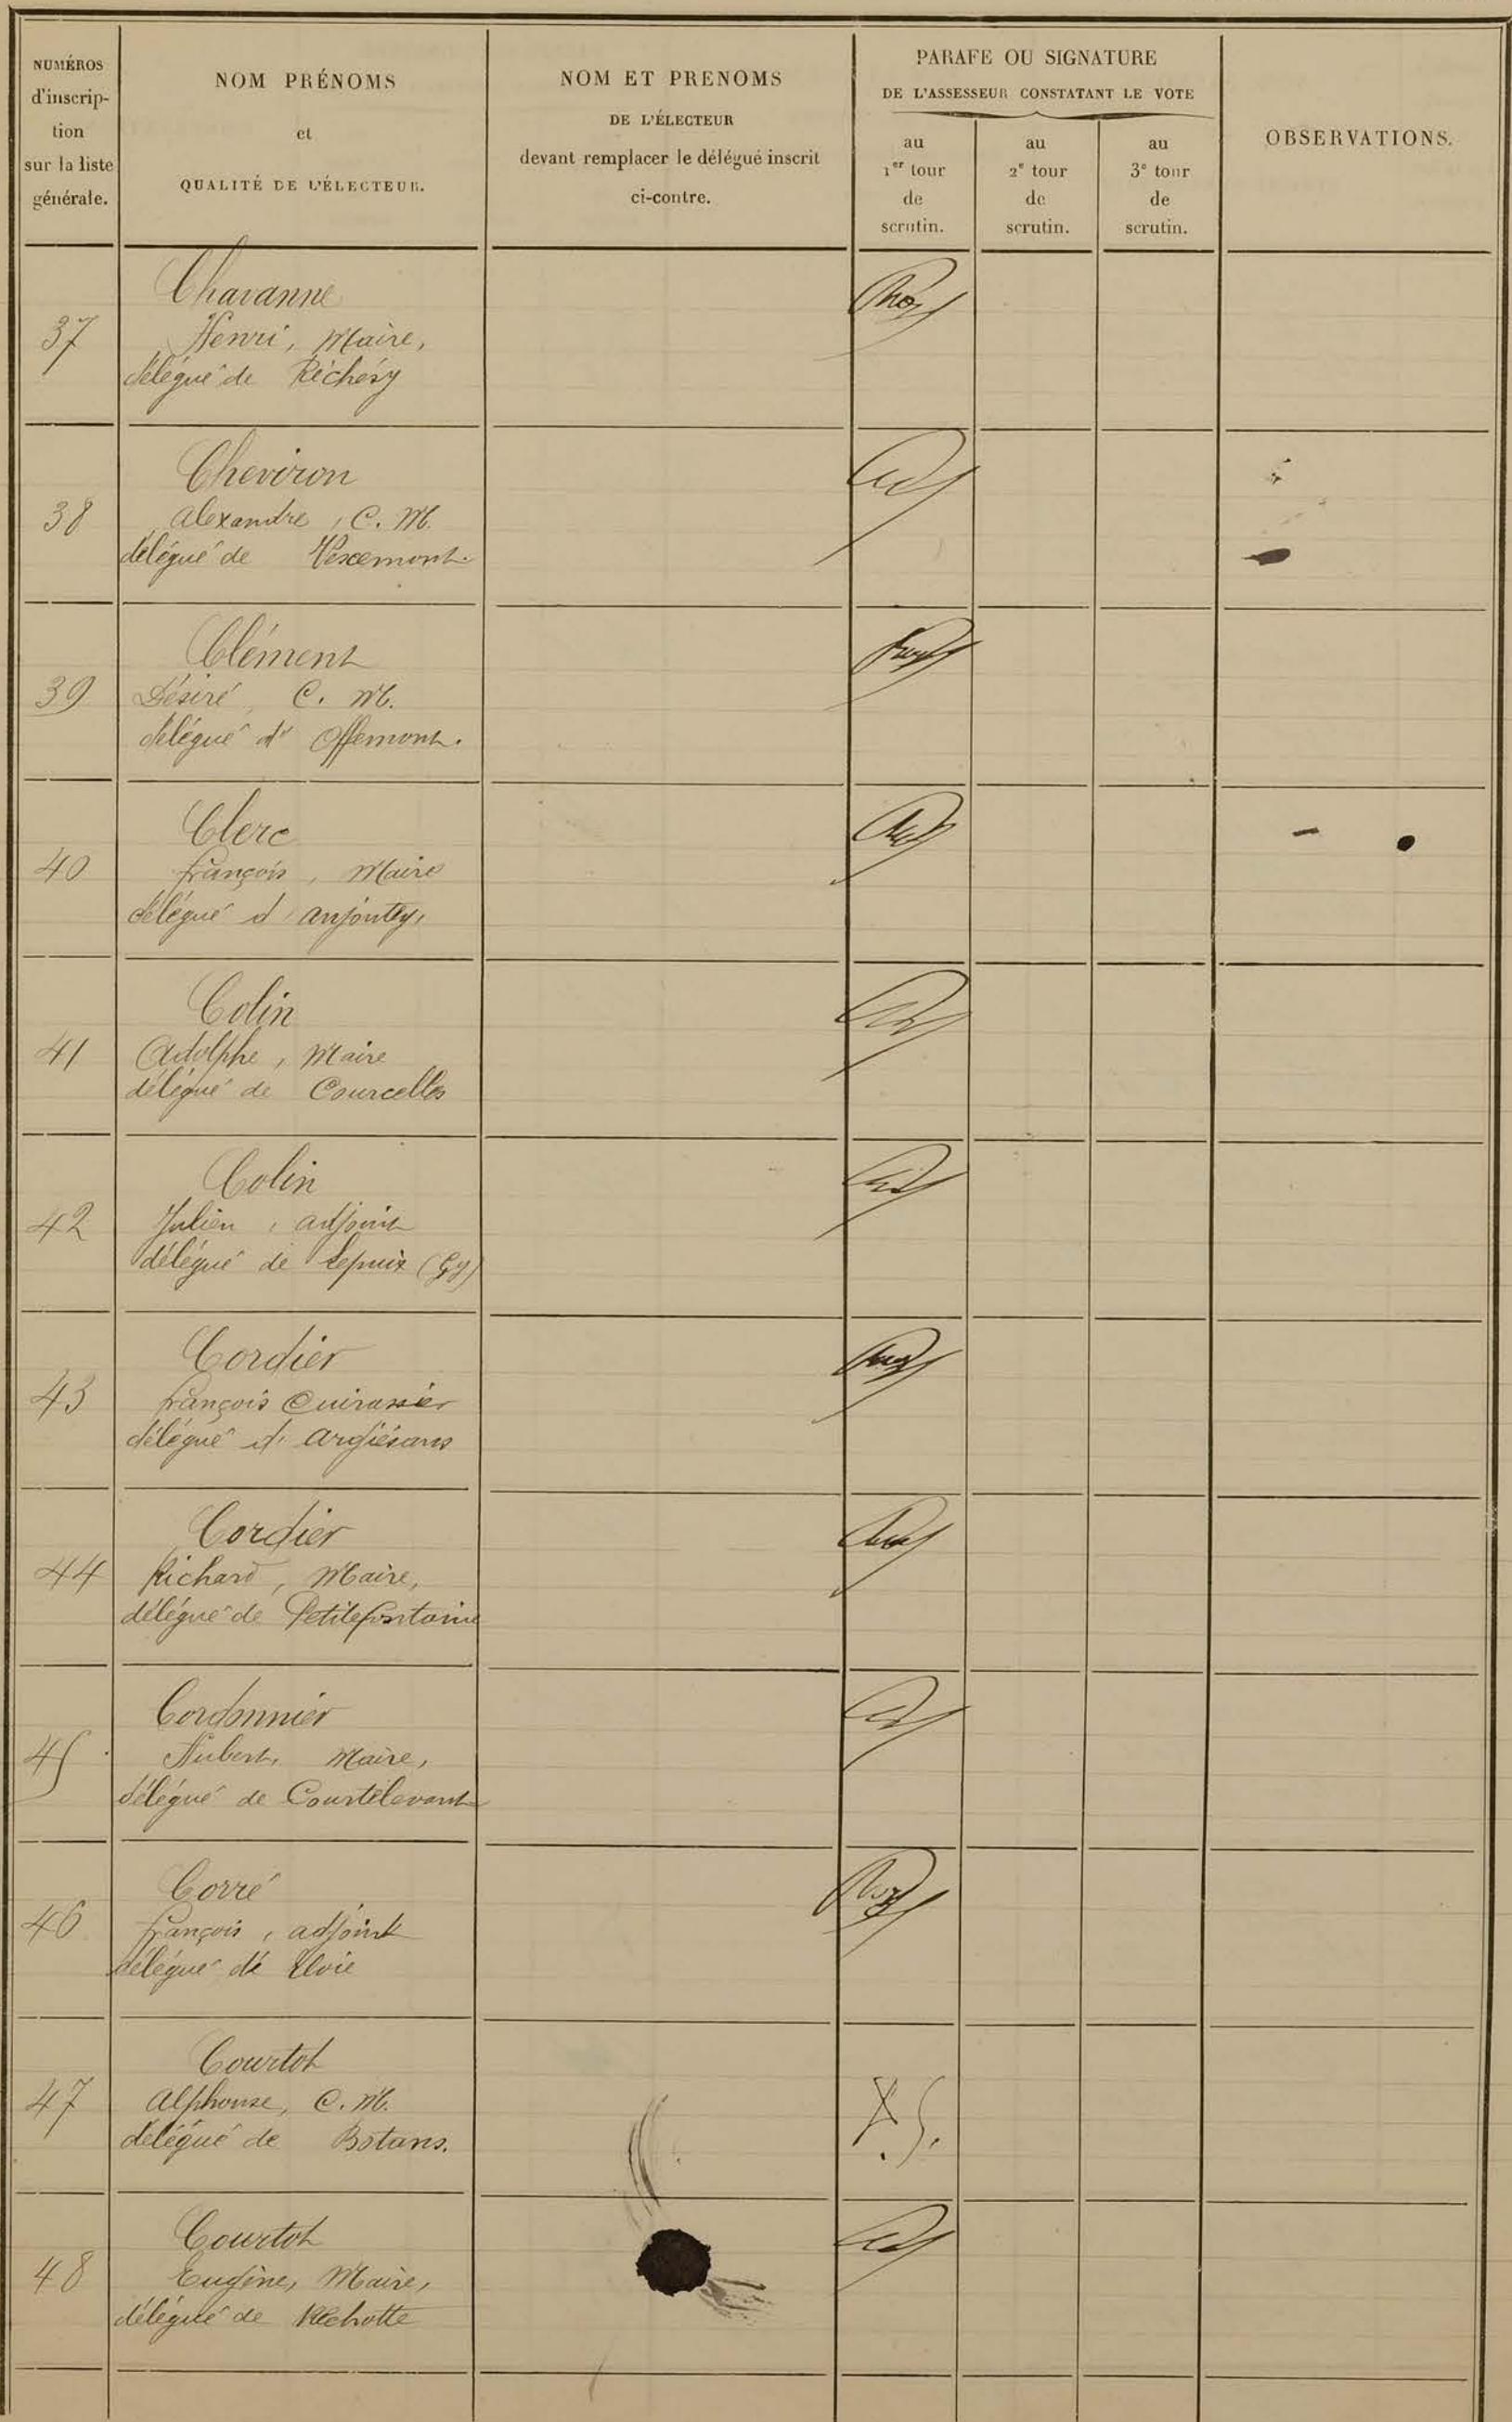 NUMÉROS
d'inscrip-
tion
sur la liste
générale.
NOM PRÉNOMS
et
QUALITÉ DE L'ÉLECTEUR.
NOM ET PRENOMS
DE L'ÉLECTEUR
devant remplacer le délégué inscrit
ci-contre.
PARAFE OU SIGNATURE
DE L'ASSESSEUR CONSTATANT LE VOTE
au
1er tour
de
scrutin.
au
2e tour
de
scrutin.
au
3e tour
de
scrutin.
OBSERVATIONS.
37
Chavanne
Henri, Maire,
délégué de Réchésy
38
Cheviron
Alexandre, C. M.
délégué de Vescemont.
39
Clément
Désiré, C. M.
délégué d' Offemont.
40
Clerc
François, Maire
délégué d'anjoutey,
41
Colin
Adolphe, Maire
délégué de Courcelles
42
Colin
Julien, adjoint
délégué de Lepuix (Gy)
43
Cordier
François Cuirassier
délégué d' argiésans
44
Cordier
Richard, Maire,
délégué de Petitefontaine
45
Cordonnier
Hubert, Maire,
délégué de Courtelevant
46
Corré
François, adjoint
délégué de Eloie
47
Courtot
Alphonse, C. M.
délégué de Botans.
48
Courtot
Eugène, Maire,
délégué de Réchotte